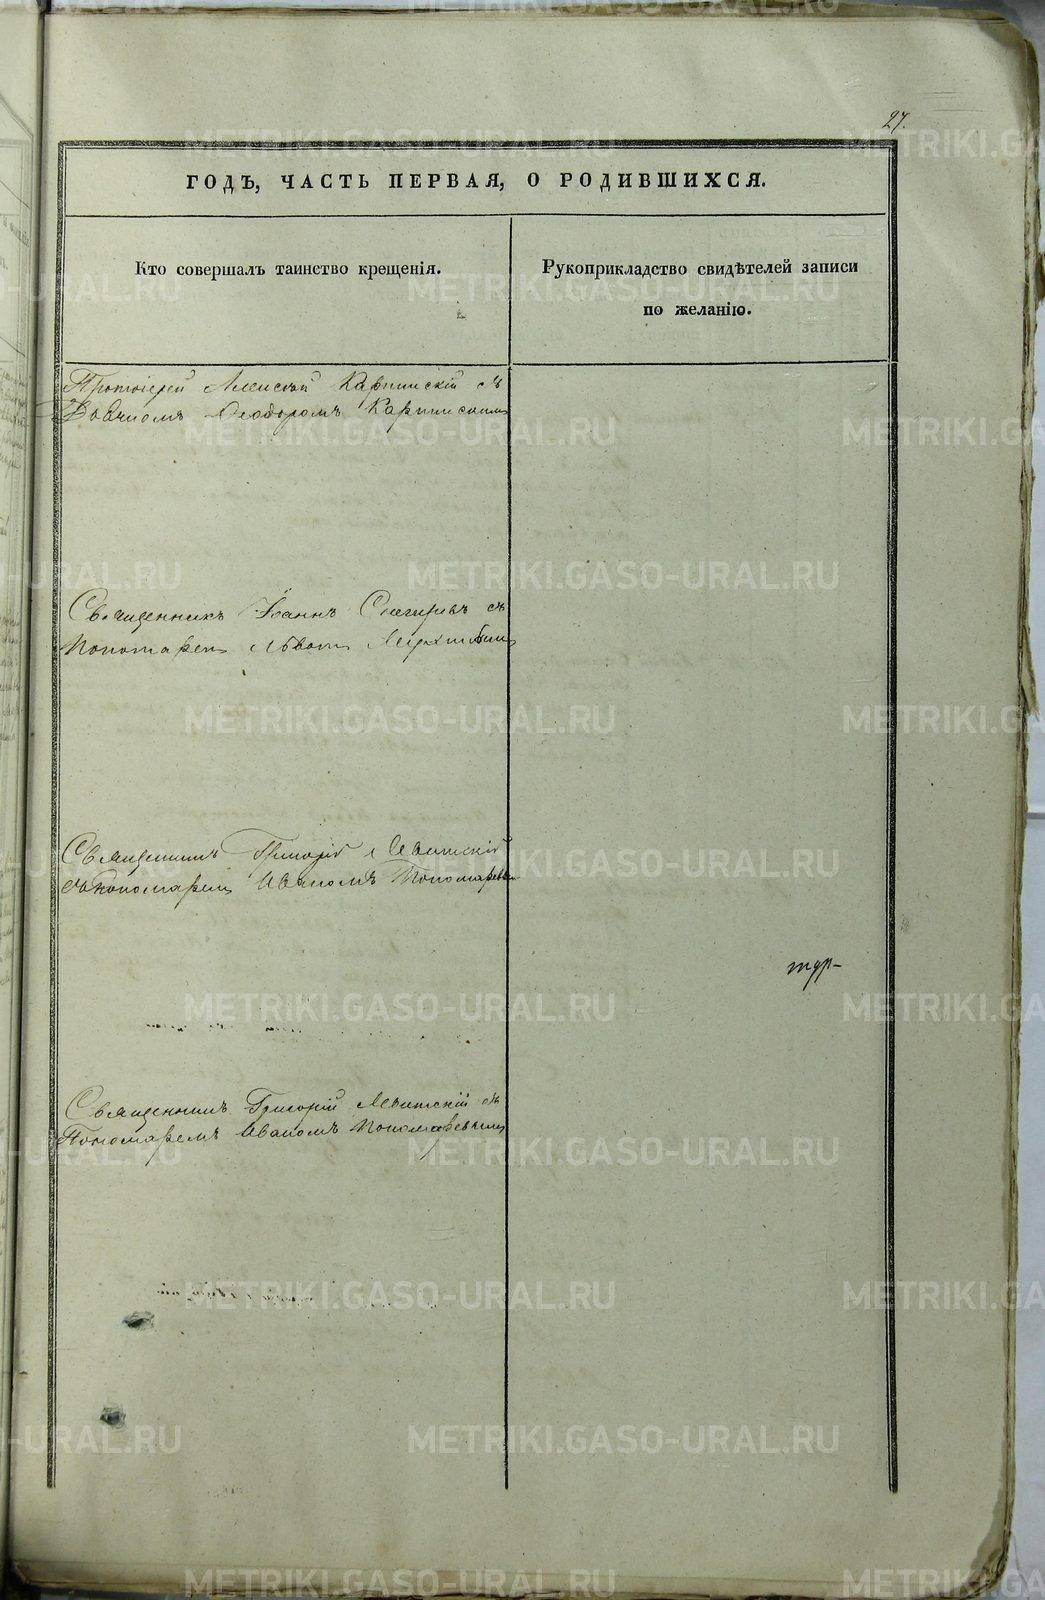 27.
ГОДЪ, ЧАСТЬ ПЕРВАЯ, О РОДИВШИХСЯ.
Кто совершалъ таинство крещенія.
Рукоприкладство свидѣтелей записи
по желанію.
Протоіерей Алексѣй Карпинскій съ
Дьячкомъ Ѳеодоромъ Карпинскимъ
Священникъ Іоаннъ Снегиревъ съ
Пономаремъ Львомъ
Священникъ Григорій Левитскій
съ Пономаремъ Иваномъ Пономаревымъ
Священникъ Григорій Левитскій съ
Пономаремъ Иваномъ Пономаревымъ
METRIKI.GASO-URAL.RU